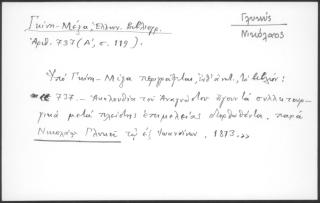 Γκίνη - Μέξα, Ελλην. Βιβλιογρ.
Αριθ. 737 (Α', σ. 119).
Γλυκύς
Νικόλαος
Υπό Γκίνη - Μέξα περιγράφεται, το βιβλίον:
«« 737. — Ακολουθία του Αναγνώστου ήγουν τα συλλειτουρ-
γικά μετά πλείστης επιμελείας διορθωθέντα. παρά
Νικολάω Γλυκεί τω εξ Ιωαννίνων. 1813.»»